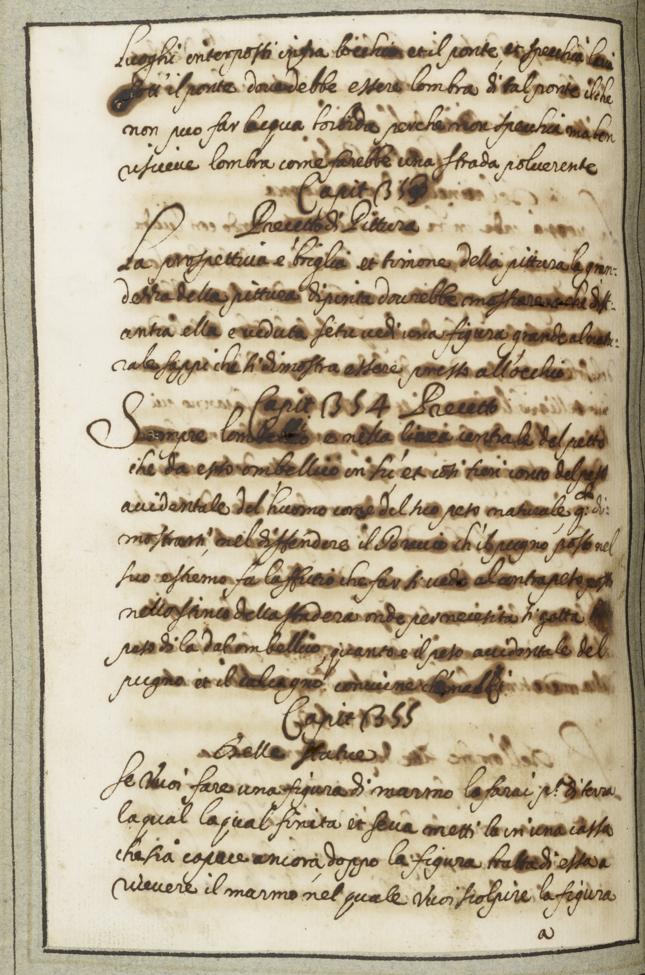 Luoghi interposti infra lochio et il ponte, et specchia lani
sott' il ponte doue debbe essere lombra di tal ponte ilche
non puo far lacqua torbida perche non specchia ma ben
riceue lombra come farebbe una strada poluerente
Capit 353
Precetto di Pittura
La prospettiua e briglia et timone della pittura la gran:
dezza della pittura dipinta dourebbe mostrare a che dist:
antia ella e ueduta se tu uedi una figura grande al natu:
rale sappi che si dimostra essere presso all'occhio
Capit 354 Precetto
Sempre lombellico e nella linea centrale del petto
che da esso ombellico in su et cosi tien conto del peso
accidentale del huomo come del suo peso naturale, q.to di:
mostrasi nel distendere il Braccio ch'il pugno posto nel
suo estremo fa laffitio che far si uede al contrapeso posto
nello stremo della stadera onde per necessita si getta
peso di la dal ombellico, quanto e il peso accidentale del
pugno et il calcagno conuiene
Capit 355
Delle statue
Se vuoi fare una figura di marmo la farai p.a di terra
la qual la qual finita et secca metti la in una cassa
che sia capace ancora doppo la figura tratta di essa a
riceuere il marmo nel quale vuoi scolpire la figura
a